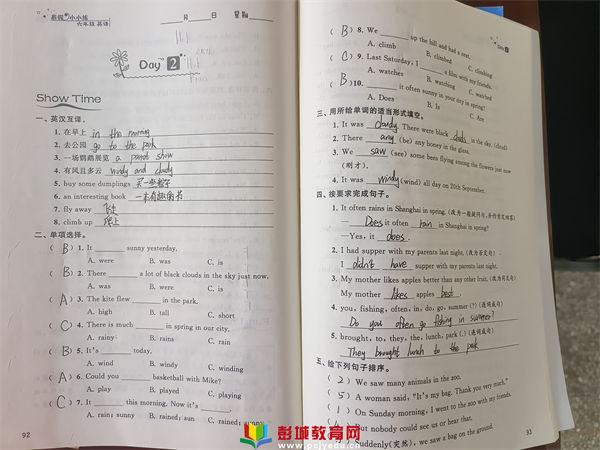 暑假小小练
六年级 英语
月 日 星期
Day 2
Show Time
一、英汉互译。
1. 在早上 in the morning
2. 去公园 go to the park
3. 一场鹦鹉展览 a parrot show
4. 有风且多云 windy and cloudy
5. buy some dumplings 买一些饺子
6. an interesting book 一本有趣的书
7. fly away 飞走
8. climb up 爬上
二、单项选择。
( B ) 1. It ______ sunny yesterday.
A. were B. was C. is
( B ) 2. There ______ a lot of black clouds in the sky just now.
A. was B. were C. is
( A ) 3. The kite flew ______ in the park.
A. high B. tall C. short
( C ) 4. There is much ______ in spring in our city.
A. rainy B. rains C. rain
( B ) 5. It's ______ today.
A. wind B. windy C. winding
( A ) 6. Could you ______ basketball with Mike?
A. play B. played C. playing
( C ) 7. It ______ this morning. Now it's ______.
A. rain; sunny B. rained; sun C. rained; sunny
92
Day 2
( B ) 8. We ______ up the hill and had a rest.
A. climb B. climbed C. climbing
( C ) 9. Last Saturday, I ______ a film with my friends.
A. watches B. watching C. watched
( B ) 10. ______ it often sunny in your city in spring?
A. Does B. Is C. Are
三、用所给单词的适当形式填空。
1. It was cloudy. There were black clouds in the sky. (cloud)
2. There any (be) any honey in the glass.
3. We saw (see) some bees flying among the flowers just now
(刚才).
4. It was windy (wind) all day on 20th September.
四、按要求完成句子。
1. It often rains in Shanghai in spring. (改为一般疑问句,并作肯定回答)
— Does it often rain in Shanghai in spring?
—Yes, it does.
2. I had supper with my parents last night. (改为否定句)
I didn't have supper with my parents last night.
3. My mother likes apples better than any other fruit. (改为同义句)
My mother likes apples best.
4. you, fishing, often, in, do, go, summer (?) (连词成句)
Do you often go fishing in summer?
5. brought, to, they, the, lunch, park (.) (连词成句)
They brought lunch to the park
五、给下列句子排序。
( 2 ) We saw many animals in the zoo.
( 5 ) A woman said, "It's my bag. Thank you very much."
( 1 ) On Sunday morning, I went to the zoo with my friends.
( 4 ) But nobody could see us or hear that.
Suddenly(突然), we saw a bag on the ground.
93
彭城教育网
www.pcjyedu.cn